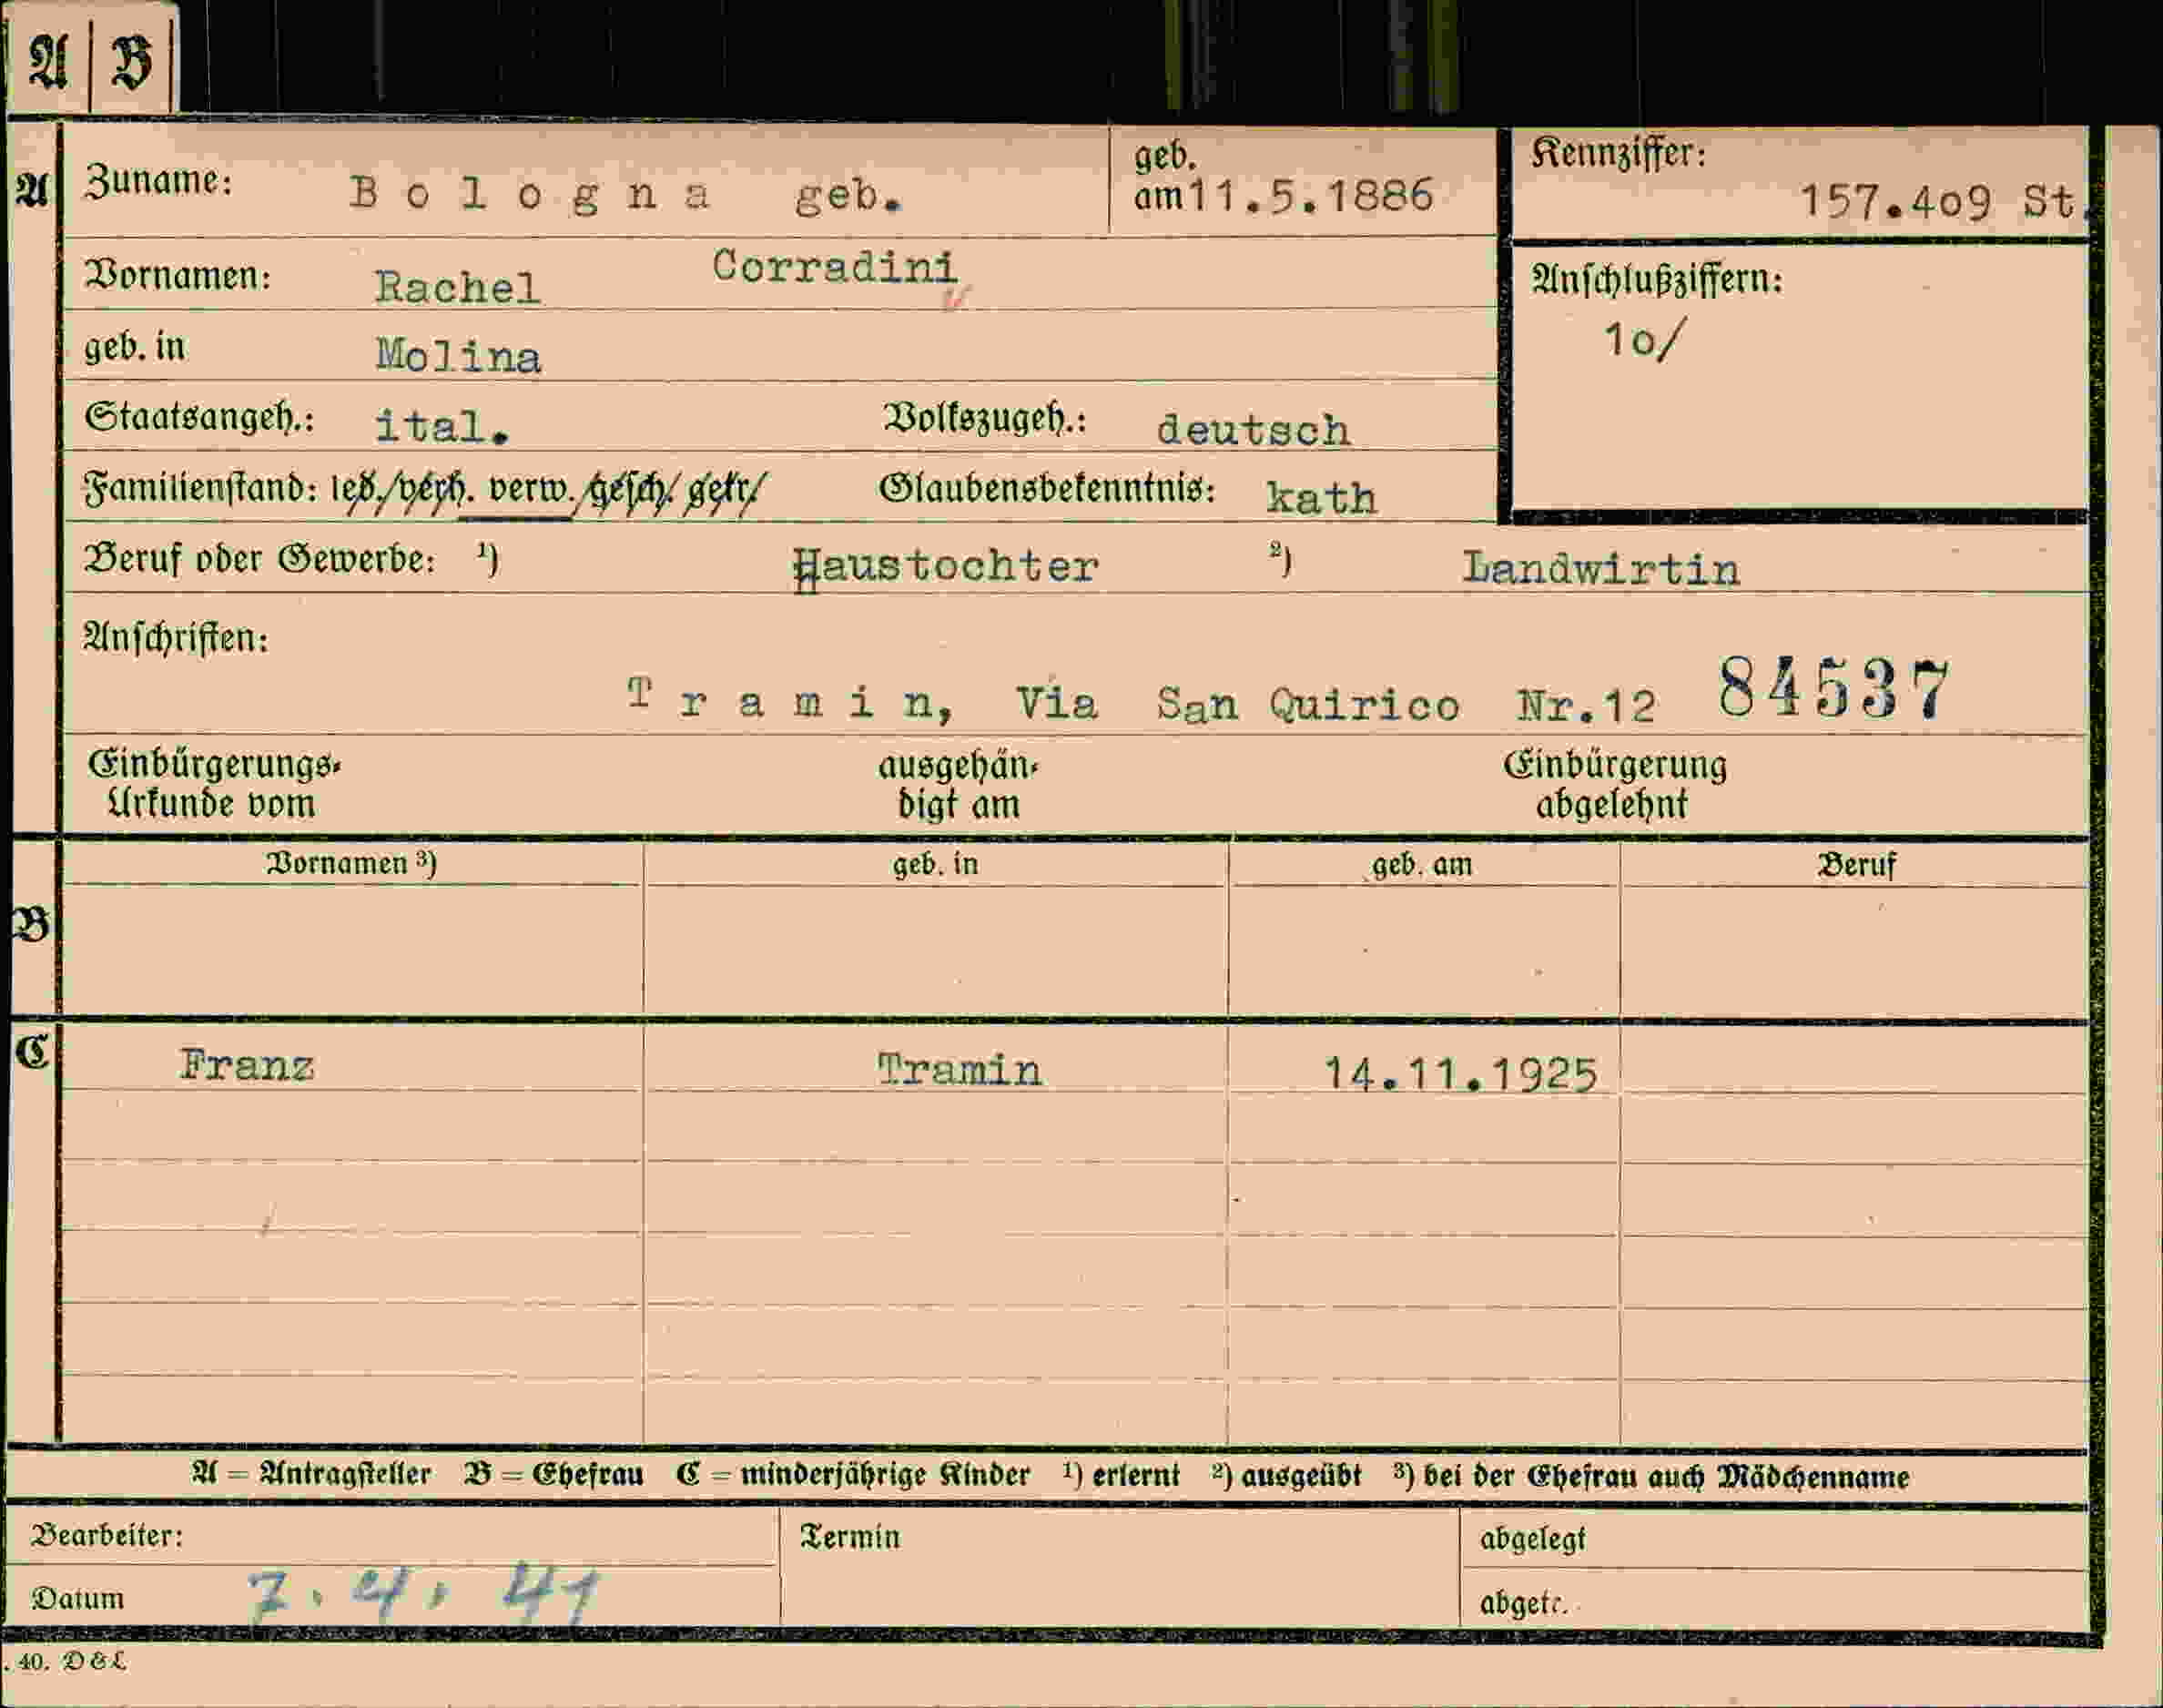 A B
A Zuname: Bologna geb. geb. am 11.5.1886 Kennziffer: 157.409 St.
Vornamen: Rachel Corradini Anschlußziffern:
10/
geb. in Molina
Staatsangeh.: ital. Volkszugeh.: deutsch
Familienstand: led./verh. verw./gesch./getr./ Glaubensbekenntnis: kath
Beruf oder Gewerbe: ¹) Haustochter ²) Landwirtin
Anschriften:
Tramin, Via San Quirico Nr.12 84537
Einbürgerungs- ausgehän- Einbürgerung
Urkunde vom digt am abgelehnt
Vornamen ³) geb. in geb. am Beruf
B
C Franz Tramin 14.11.1925
A = Antragsteller B = Ehefrau C = minderjährige Kinder ¹) erlernt ²) ausgeübt ³) bei der Ehefrau auch Mädchenname
Bearbeiter: Termin abgelegt
Datum 7. 4. 41 abgetr.
. 40. D & L